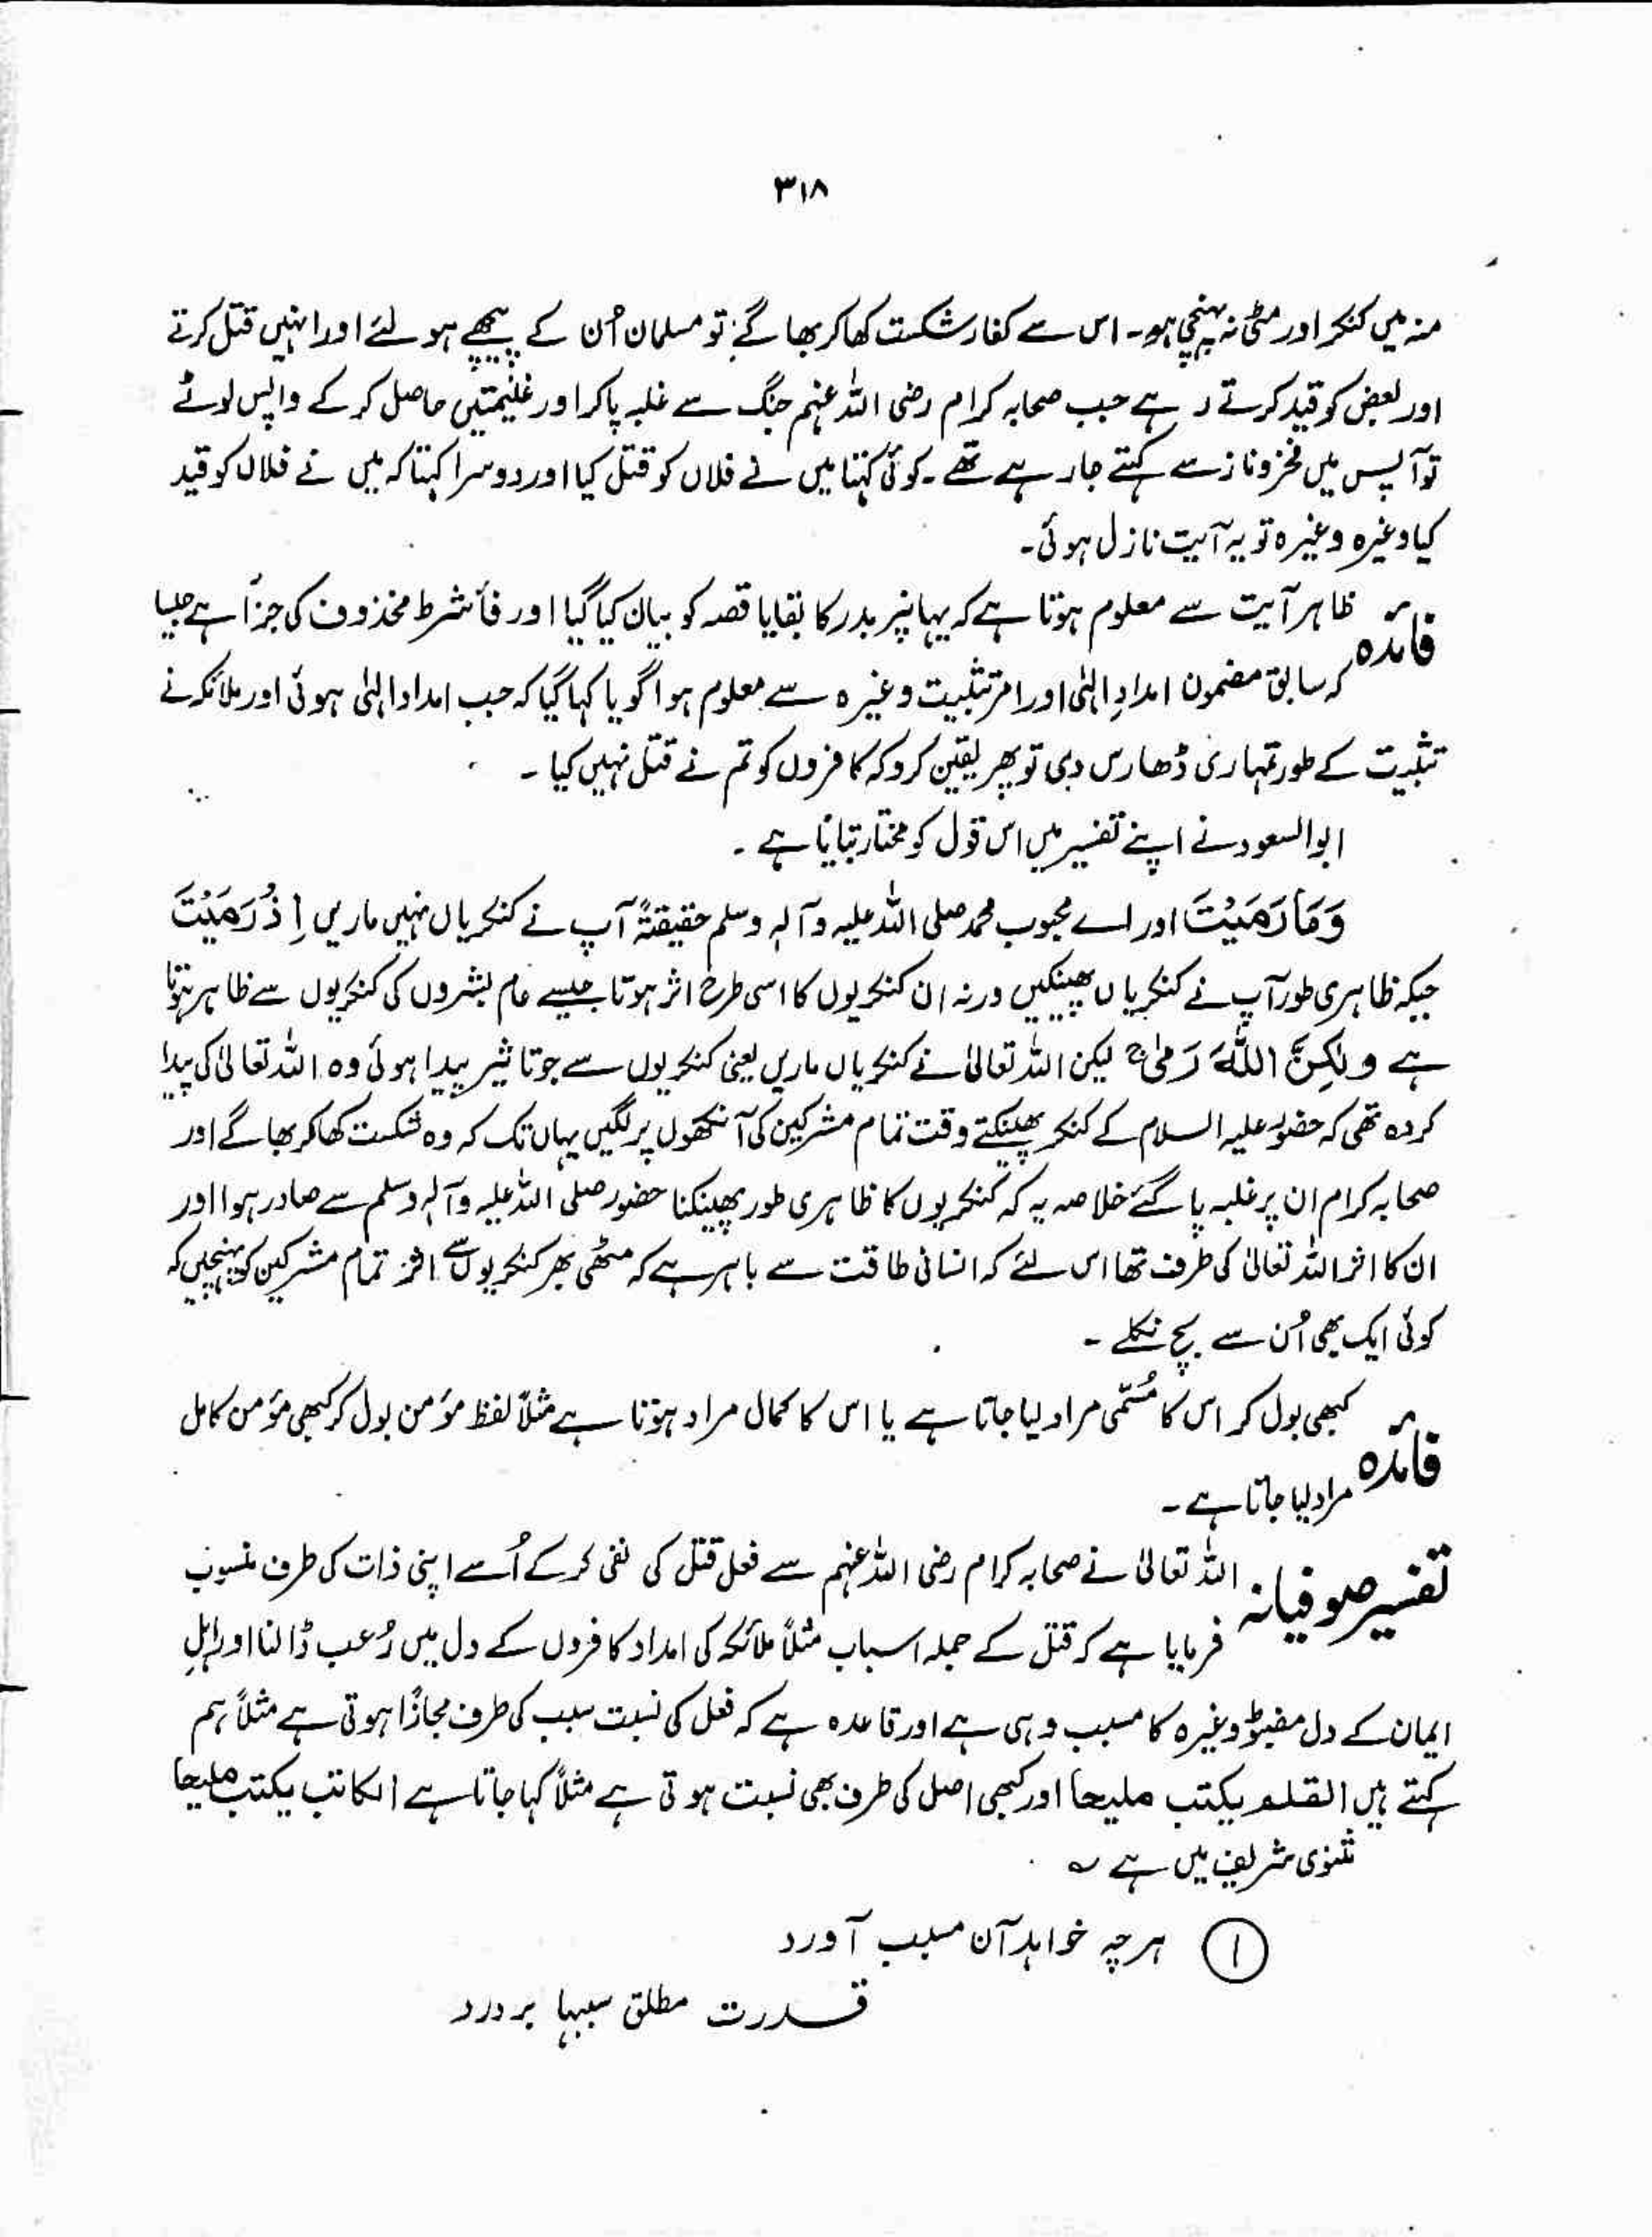 ۳۱۸
منہ میں کنکر اور مٹی نہ پہنچی ہو۔ اس سے کفار شکست کھا کر بھاگے تو مسلمان اُن کے پیچھے ہو لئے اور انہیں قتل کرتے
اور بعض کو قید کرتے رہے جب صحابہ کرام رضی اللہ عنہم جنگ سے غلبہ پاکر اور غنیمتیں حاصل کر کے واپس لوٹے
تو آپس میں فخر و ناز سے کہتے جارہے تھے۔ کوئی کہتا میں نے فلاں کو قتل کیا اور دوسرا کہتا کہ میں نے فلاں کو قید
کیا وغیرہ وغیرہ تو یہ آیت نازل ہوئی۔
فائدہ ظاہر آیت سے معلوم ہوتا ہے کہ یہانپر بدر کا بقایا قصہ کو بیان کیا گیا اور فأ شرط مخذوف کی جزأ ہے جیسا
کہ سابق مضمون امدادِ الہٰی اور امر تثبیت وغیرہ سے معلوم ہوا گویا کہا گیا کہ جب امداد الہٰی ہوئی اور ملائکہ نے
تثبیت کے طور تمہاری ڈھارس دی تو پھر یقین کرو کہ کافروں کو تم نے قتل نہیں کیا ۔
ابوالسعود نے اپنے تفسیر میں اس قول کو مختار بتایا ہے ۔
وَمَا رَمَيْتَ اور اے محبوب محمد صلی اللہ علیہ وآلہٖ وسلم حقیقۃً آپ نے کنکریاں نہیں ماریں اِذْ رَمَيْتَ
جبکہ ظاہری طور آپ نے کنکریاں پھینکیں ورنہ ان کنکریوں کا اسی طرح اثر ہوتا جیسے عام بشروں کی کنکریوں سے ظاہر ہوتا
ہے ولٰكِنَّ اللّٰهَ رَمٰى ج لیکن اللہ تعالیٰ نے کنکریاں ماریں یعنی کنکریوں سے جو تاثیر پیدا ہوئی وہ اللہ تعالیٰ کی پیدا
کردہ تھی کہ حضور علیہ السلام کے کنکر پھینکتے وقت تمام مشرکین کی آنکھوں پر لگیں یہاں تک کہ وہ شکست کھا کر بھاگے اور
صحابہ کرام ان پر غلبہ پا گئے خلاصہ یہ کہ کنکریوں کا ظاہری طور پھینکنا حضور صلی اللہ علیہ وآلہٖ وسلم سے صادر ہوا اور
ان کا اثر اللہ تعالیٰ کی طرف تھا اس لئے کہ انسانی طاقت سے باہر ہے کہ مٹھی بھر کنکریوں سے اثر تمام مشرکین کو پہنچیں کہ
کوئی ایک بھی اُن سے بچ نکلے ۔
فائدہ کبھی بول کر اس کا مُسمّٰی مراد لیا جاتا ہے یا اس کا کمال مراد ہوتا ہے مثلاً لفظ مؤمن بول کر کبھی مؤمن کامل
مراد لیا جاتا ہے ۔
تفسیر صوفیانہ اللہ تعالیٰ نے صحابہ کرام رضی اللہ عنہم سے فعل قتل کی نفی کر کے اُسے اپنی ذات کی طرف منسوب
فرمایا ہے کہ قتل کے جملہ اسباب مثلاً ملائکہ کی امداد کافروں کے دل میں رُعب ڈالنا اور اہلِ
ایمان کے دل مضبوط وغیرہ کا مسبب وہی ہے اور قاعدہ ہے کہ فعل کی نسبت سبب کی طرف مجازاً ہوتی ہے مثلاً ہم
کہتے ہیں القلم یکتب ملیحا اور کبھی اصل کی طرف بھی نسبت ہوتی ہے مثلاً کہا جاتا ہے الکاتب یکتب ملیحا
مثنوی شریف میں ہے ؎
۱ ہرچہ خواہد آن مسبب آورد
قدرت مطلق سببہا بر درد